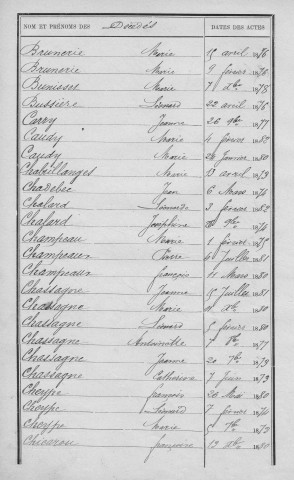 NOM ET PRÉNOMS DES Décédés DATES DES ACTES
Brunerie Marie 15 avril 1876
Brunerie Marie 9 février 1876
Bunisset Marie 7 Xbre 1878
Bussière Léonard 22 avril 1876
Carry Jeanne 26 9bre 1877
Caudy Marie 4 février 1882
Caudy Marie 24 Janvier 1880
Chabrillanges Marie 13 avril 1879
Chadebec Jean 6 Mars 1876
Chalard Léonarde 3 février 1882
Chalard Joséphine 9bre 1874
Champeau Marie 6 février 1875
Champeaux Pierre 6 Juillet 1881
Champeaux françois 4 Mars 1880
Chassagne Jeanne 15 Juillet 1881
Chassagne Marie Xbre 1880
Chassagne Léonard 5 février 1880
Chassagne Antoinette 7 1877
Chassagne Jeanne 20 7bre 1879
Chassagne Catherine 7 Juin 1879
Cheype françois 20 Mai 1880
Cheype Léonard 7 février 1874
Cheype Marie 5 7bre 1879
Chicarou françoise 13 Xbre 1880